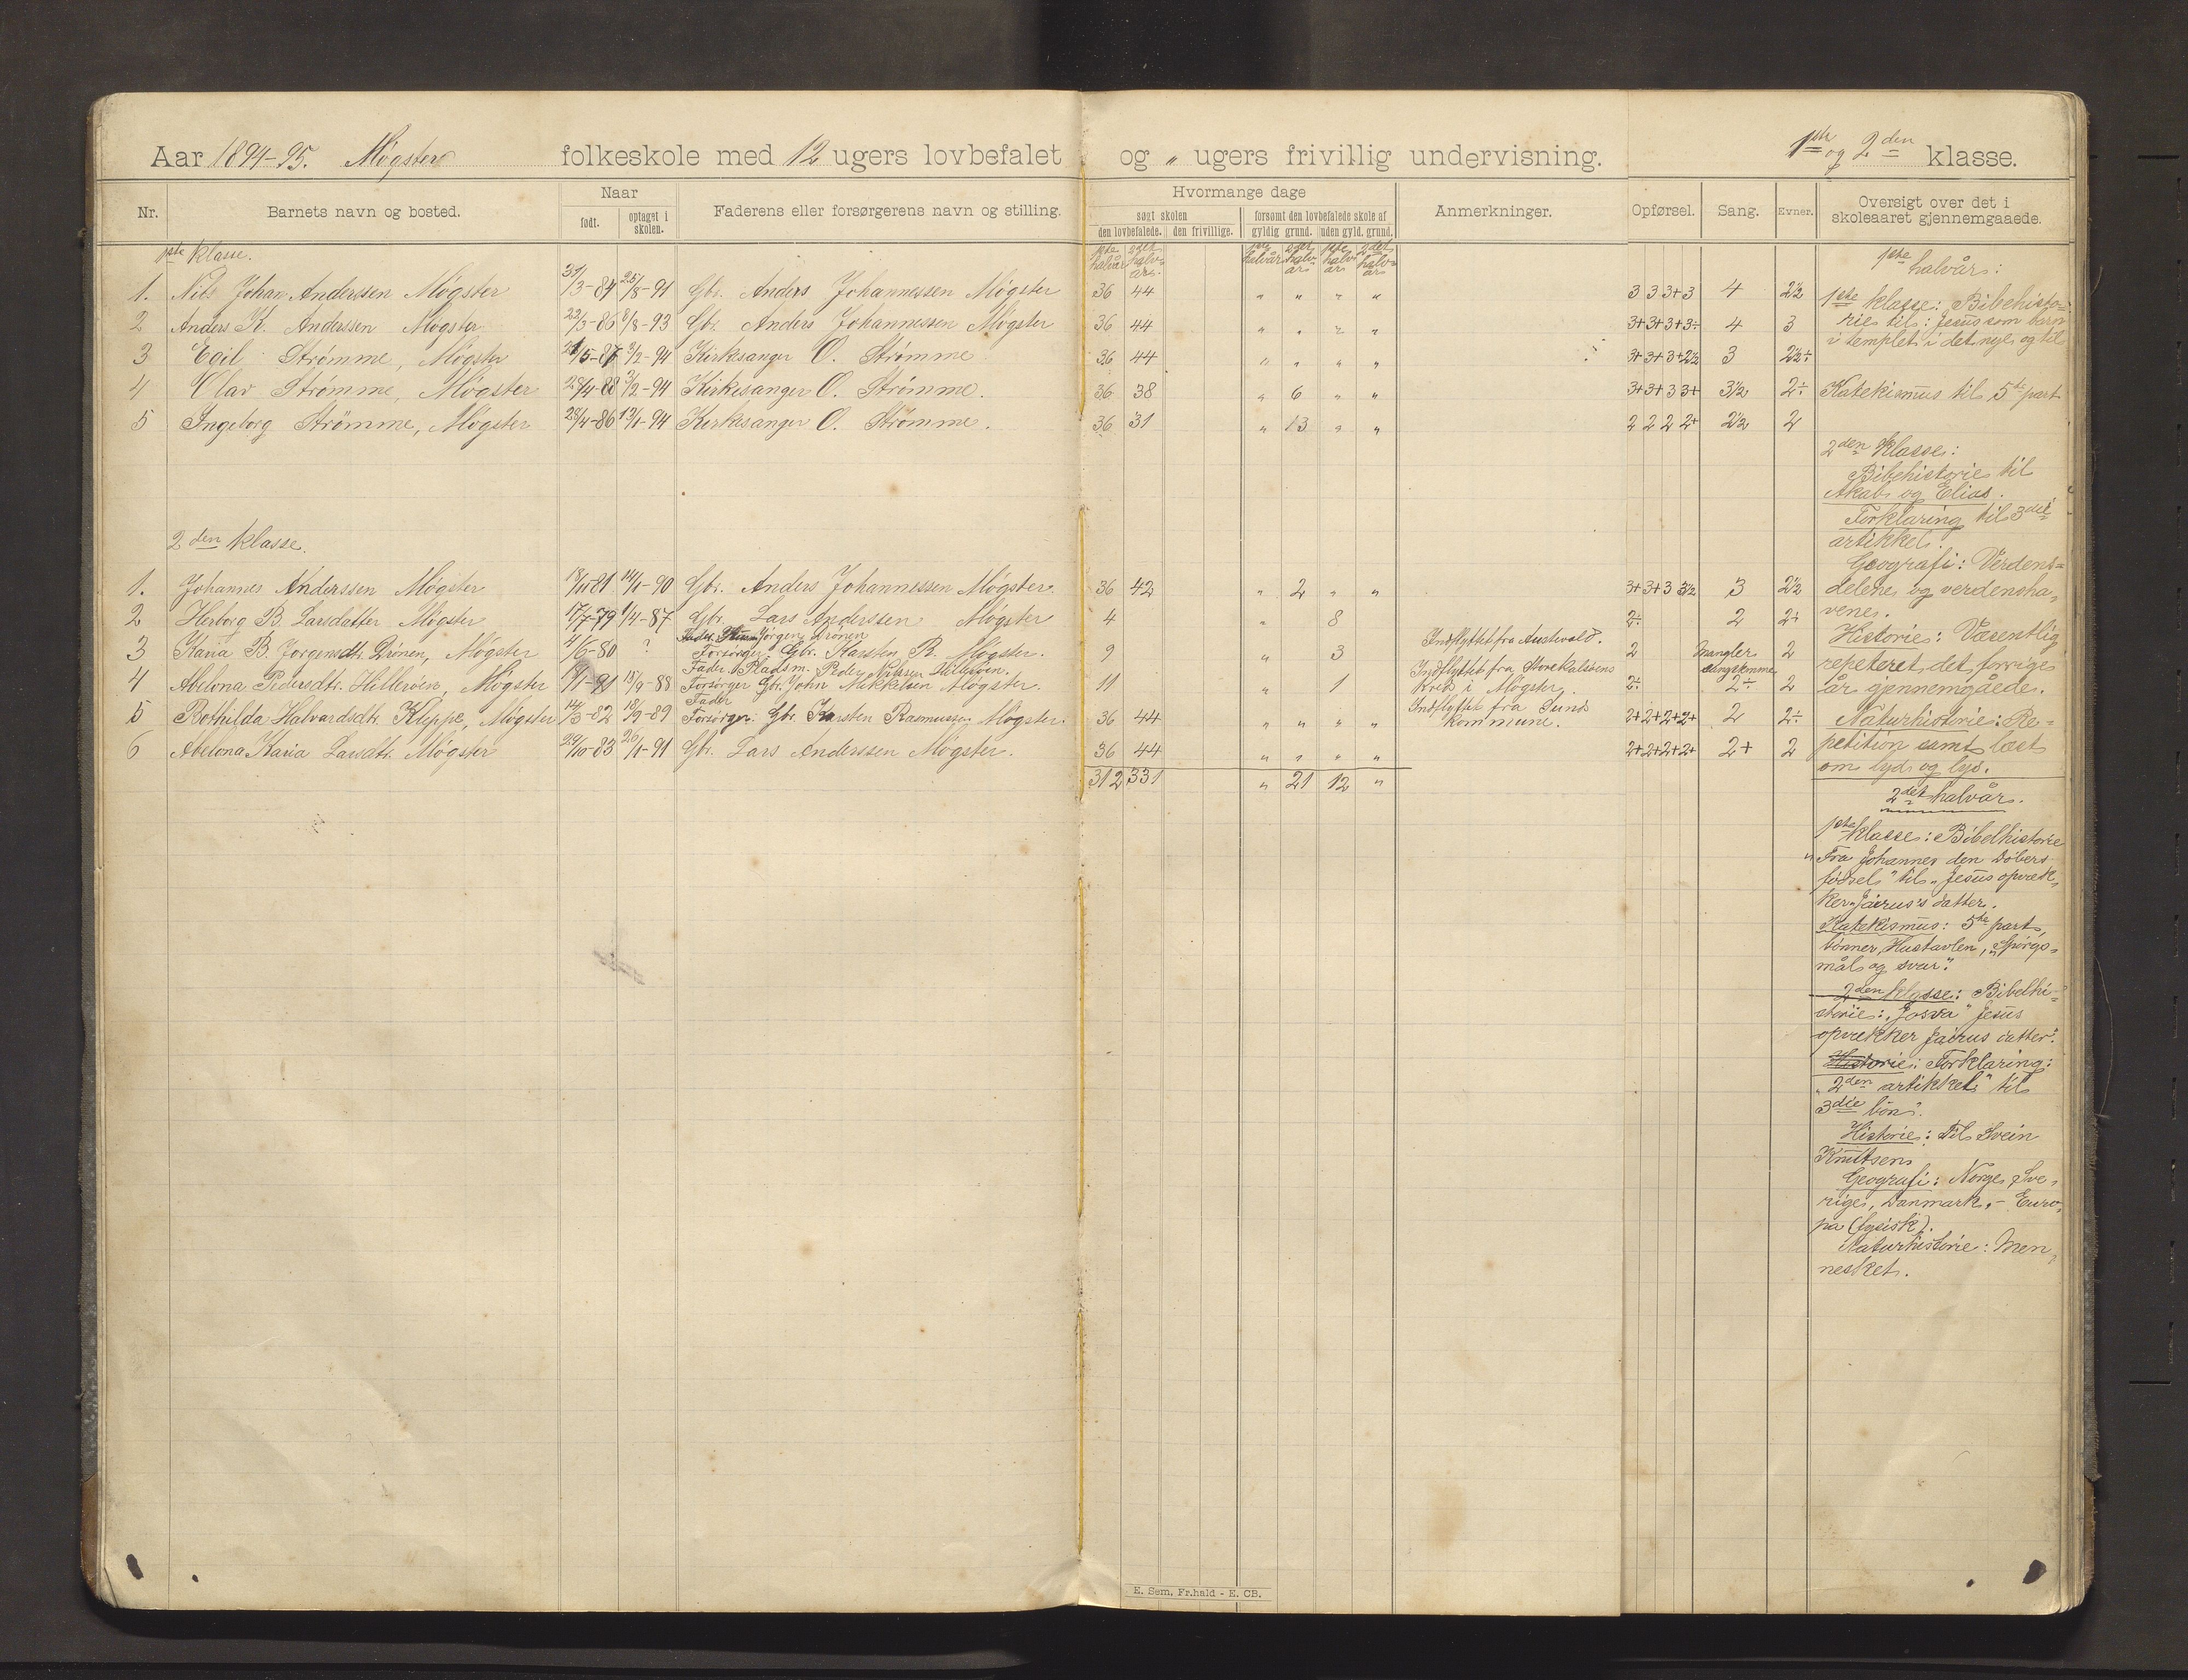 Aar 1894-95. Møgster folkeskole med 12 ugers lovbefalet og „ ugers frivillig undervisning. 1ste og 2den klasse.
Nr. Barnets navn og bosted. Naar Faderens eller forsørgerens navn og stilling. Hvormange dage Anmerkninger. Opførsel. Sang. Evner. Oversigt over det i
skoleaaret gjennemgaaede.
født. optaget i skolen. søgt skolen forsømt den lovbefalede skole af
den lovbefalede. den frivillige. gyldig grund. uden gyld. grund.
1ste halvår 2det halvår. 1ste halvår 2det halvår 1ste halvår 2det halvår
1ste klasse.
1. Nils Johan Anderssen Møgster 31/3-84 25/8-91 Gbr. Anders Johannessen Møgster 36 44 „ „ „ „ 3 3 3+3 4 2½
2 Anders K. Anderssen Møgster 22/3-86 8/8-93 Gbr. Anders Johannessen Møgster 36 44 „ „ „ „ 3+3+3+3÷ 4 3
3 Egil Strømme, Møgster 21/5-87 3/2-94 Kirkesanger O. Strømme 36 44 „ „ „ „ 3+3+3+2½ 3 2½÷
4 Olav Strømme, Møgster 28/4-88 3/2-94 Kirkesanger O. Strømme. 36 38 „ 6 „ „ 3+3+3 3+ 3½ 2÷
5 Ingeborg Strømme, Møgster 28/4-86 13/1-94 Kirkesanger O. Strømme. 36 31 „ 13 „ „ 2 2 2 2+ 2½ 2
2den klasse.
1. Johannes Anderssen Møgster 18/11 81 14/1-90 Gbr. Anders Johannessen Møgster. 36 42 „ 2 „ „ 3+3+3 3½ 3 2½
2 Herborg B. Larsdatter Møgster 17/7-79 1/4-87 Gbr. Lars Anderssen Møgster 4 „ 8 2÷ 2 2÷
Fader Jørgen Drønen
3 Karia B. Jørgensdtr. Drønen, Møgster 4/6-80 ? Forsørger: Gbr. Karsten R. Møgster. 9 „ 3 Indflyttet fra Austevold. 2 Mangler sangstemme 2
Fader Pladsm. Peder Nilssen Hillerøen.
4 Abelona Pedersdtr. Hillerøen, Møgster 15/9-88 Forsørger Gbr. John Mikkelsen Møgster. 11 „ 1 Indflyttet fra Storekalsøens
kreds i Møgster. 2÷ 2÷ 2
Fader
5 Bothilda Halvardsdtr. Kleppe, Møgster 14/3-82 18/9-89 Forsørger: Gbr. Karsten Rasmussen Møgster. 36 44 „ „ „ „ Indflyttet fra Sund
kommune. 2+2+2+2+ 2 2÷
6 Abelona Karia Larsdtr. Møgster 29/10-83 26/1-91 Gbr. Lars Anderssen Møgster. 36 44 „ „ „ „ 2+2+2+2+ 2+ 2
312 331 „ 21 12 „
1ste halvår:
1ste klasse: Bibehisto-
rie til: Jesus som barn
i templet i det nye og til
Katekismus til 5te part
2den klasse:
Bibehistorie til
Akab og Elias.
Forklaring til 3die
artikkel.
Geografi: Verdens-
delene og verdensha-
vene.
Historie: Væsentlig
repeteret det forrige
år gjennemgåede.
Naturhistorie: Re-
petition samt læst
om lyd og lys.
2det halvår.
1ste klasse: Bibelhistorie
„Fra Johannes den Døbers
fødsel" til „Jesus opvæk-
ker Jairus's datter.
Katekismus: 5te part,
bønner, Hustavlen, „Spørgs-
mål og svar".
2den klasse: Bibelhi-
storie: „Josva" Jesus
opvækker Jairus datter".
Historie: Forklaring:
„2den artikkel" til
3die bøn".
Historie: Til Svein
Knutsen
Geografi: Norge, Sve-
rige, Danmark. - Euro-
pa (fysisk).
Naturhistorie: Men-
nesket.
E. Sem, Fr.hald - E. CB.